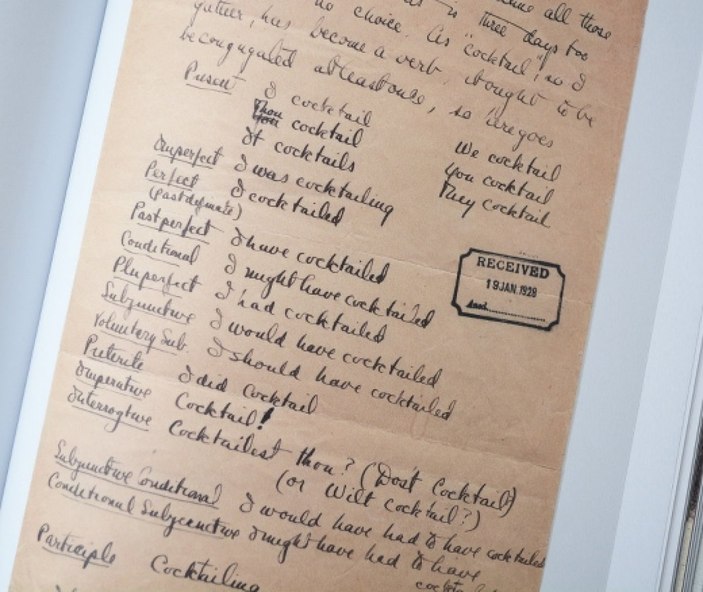 all those
is three days too
no choice. As "cocktail", so I
gather, has become a verb, it ought to be
conjugated at least once, so here goes
Present I cocktail We cocktail
Thou cocktail You cocktail
It cocktails They cocktail
Imperfect I was cocktailing
Perfect I cocktailed
(past definite)
Past perfect I have cocktailed
Conditional I might have cocktailed
Pluperfect I had cocktailed
Subjunctive I would have cocktailed
Voluntary Sub. I should have cocktailed
Preterite I did cocktail
Imperative Cocktail!
Interrogtive Cocktailest thou? (Dost Cocktail)
(or Wilt Cocktail?)
Subjunctive Conditional I would have had to have cocktailed
Conditional Subjunctive I might have had to have
Participle Cocktailing
RECEIVED
19 JAN. 1928